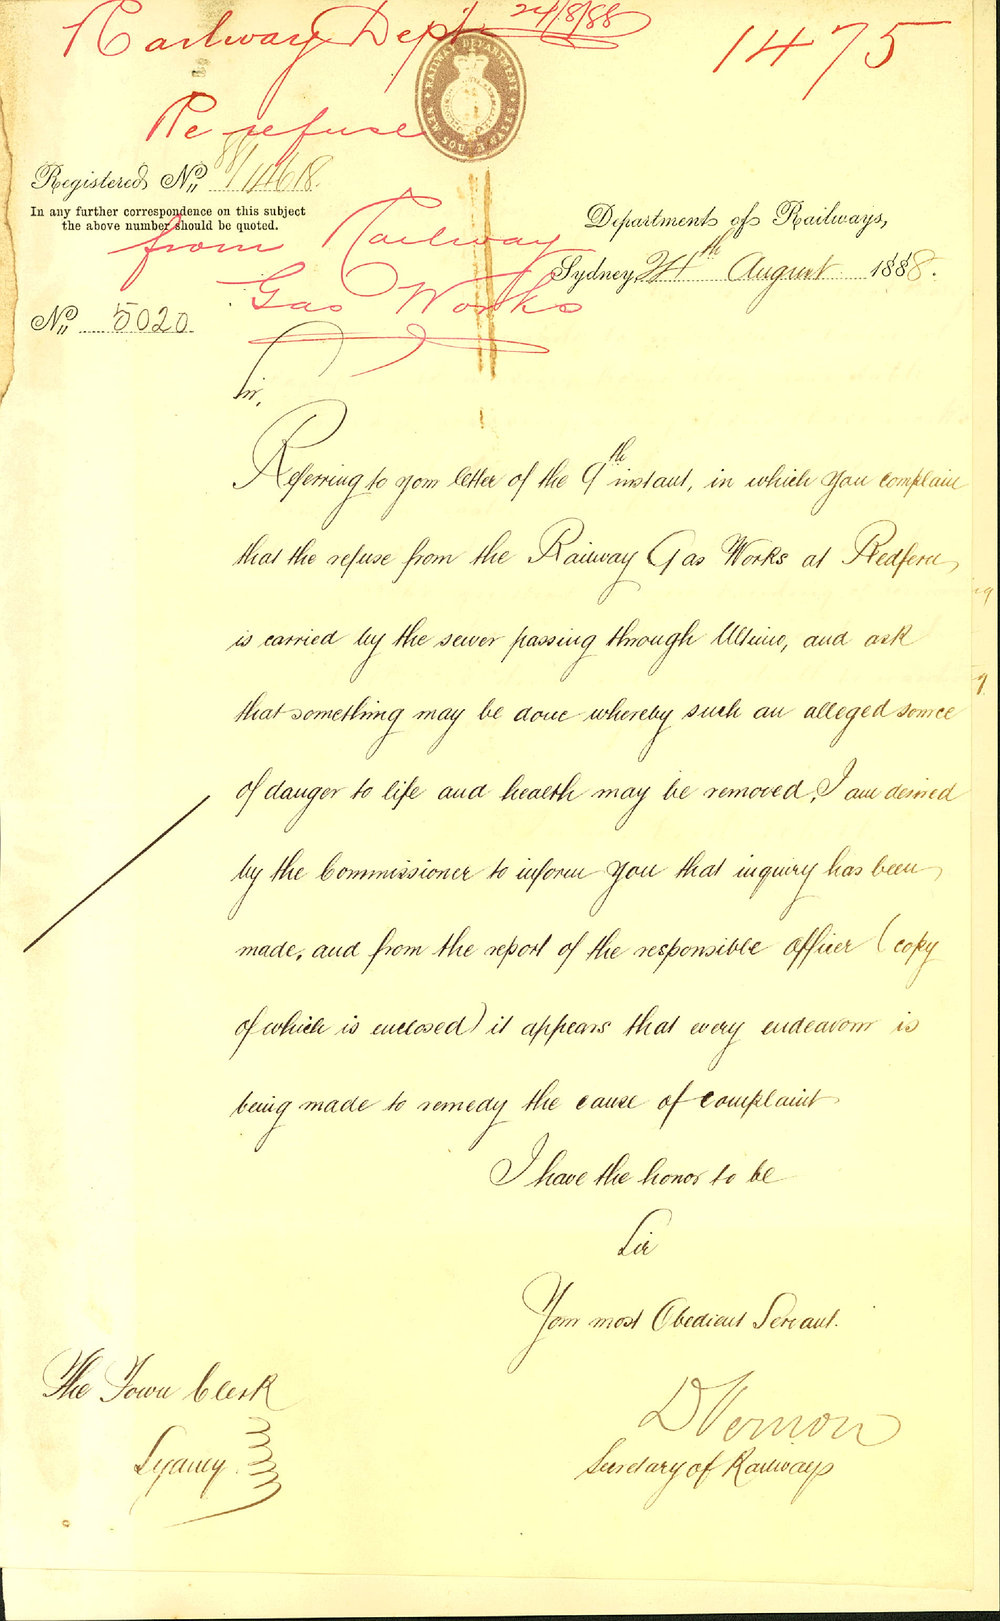 Railway Dept 24/8/88
1475
RAILWAY DEPARTMENT
NEW SOUTH WALES
Re refuse
Registered No. 88/11618.
In any further correspondence on this subject
the above number should be quoted.
from Railway
Gas Works
Department of Railways,
Sydney, 24th August 1888.
No. 5020
Sir,
Referring to your letter of the 9th instant, in which you complain
that the refuse from the Railway Gas Works at Redfern
is carried by the sewer passing through Ultimo, and ask
that something may be done whereby such an alleged source
of danger to life and health may be removed, I am desired
by the Commissioner to inform you that inquiry has been
made, and from the report of the responsible officer (copy
of which is enclosed) it appears that every endeavour is
being made to remedy the cause of complaint
I have the honor to be
Sir
Your most Obedient Servant.
DVernon
Secretary of Railways
The Town Clerk
Sydney